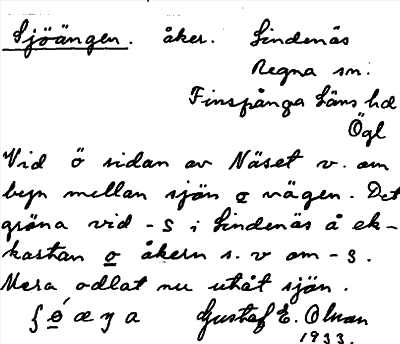 Sjöängen. åker. Lindenäs
Regna sn.
Finspånga Läns hd
Ögl
Vid ö sidan av Näset v. om
byn mellan sjön o vägen. Det
gröna vid - S i Lindenäs å ek-
kastan o åkern s. v om - 3.
Mera odlat nu utåt sjön.
Gustaf E. Olman
1933.